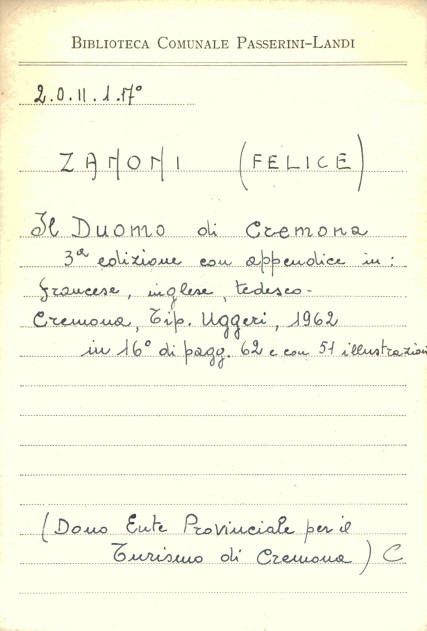 BIBLIOTECA COMUNALE PASSERINI-LANDI
2.0.II.1.17°
ZANONI (FELICE)
Il Duomo di Cremona
3ª edizione con appendice in:
francese, inglese, tedesco-
Cremona, Tip. Uggeri, 1962
in 16° di pagg. 62 e con 51 illustrazioni
(Dono Ente Provinciale per il
Turismo di Cremona) C